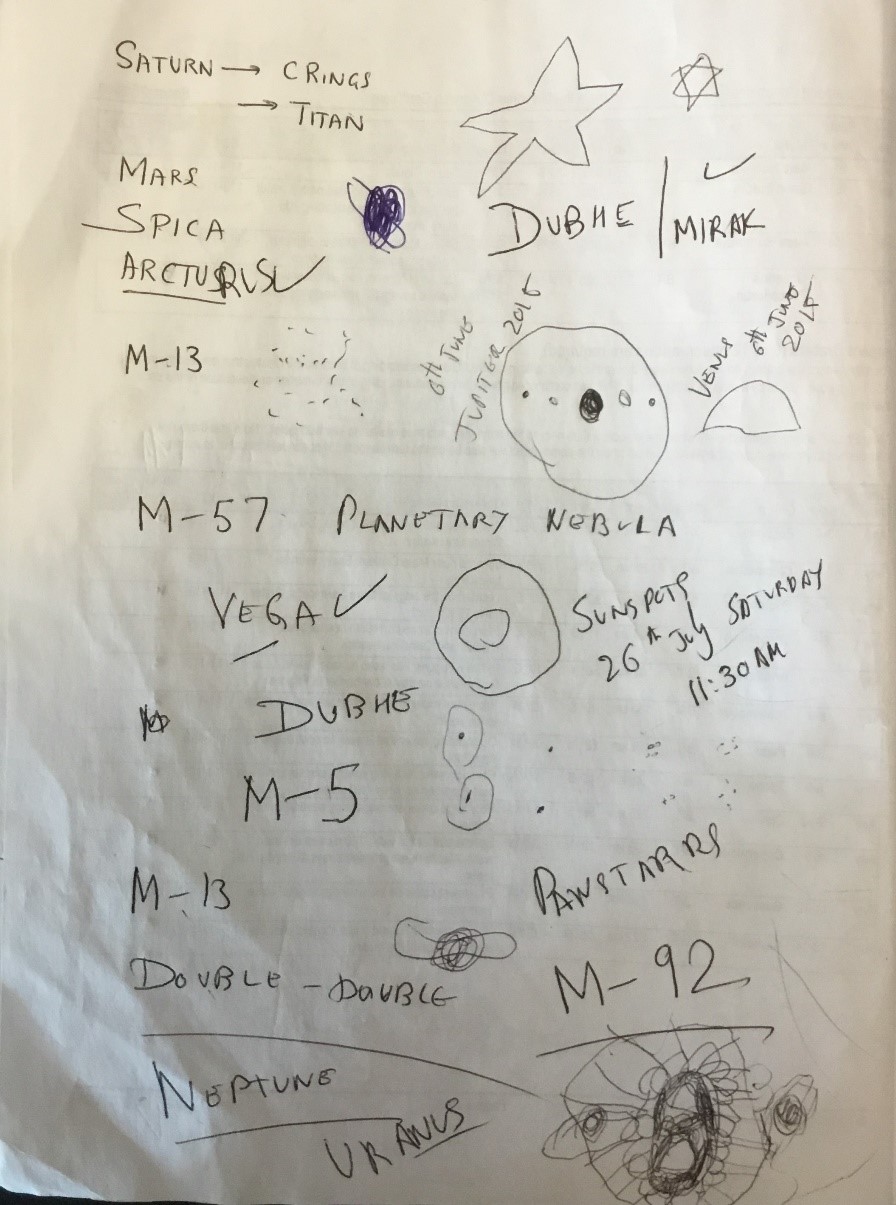 SATURN → C RINGS
→ TITAN
MARS
SPICA
DUBHE / MIRAK
6th JUNE
JUPITER 2015
VENUS 6th JUNE
2015
M-13
M-57 PLANETARY NEBULA
VEGA
SUNSPOTS
26th July SATURDAY
11:30AM
DUBHE
M-5
M-13
PANSTARRS
DOUBLE-DOUBLE
M-92
NEPTUNE
URANUS